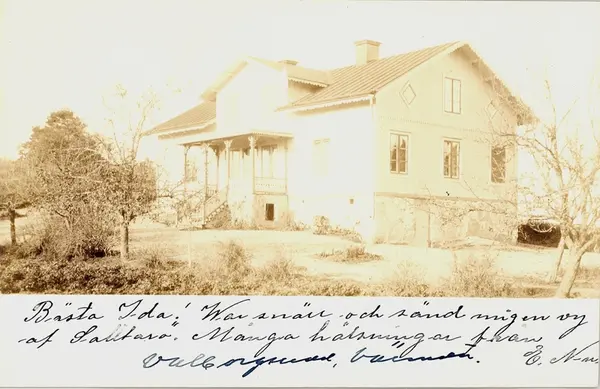 Bästa Ida! War snäll och sänd mig en vy
af Saltarö. Många hälsningar från
E. N-n.